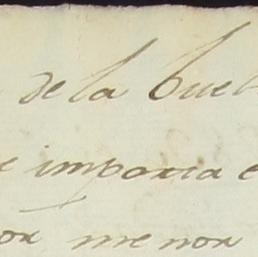 de la buel
e importa e
or menor